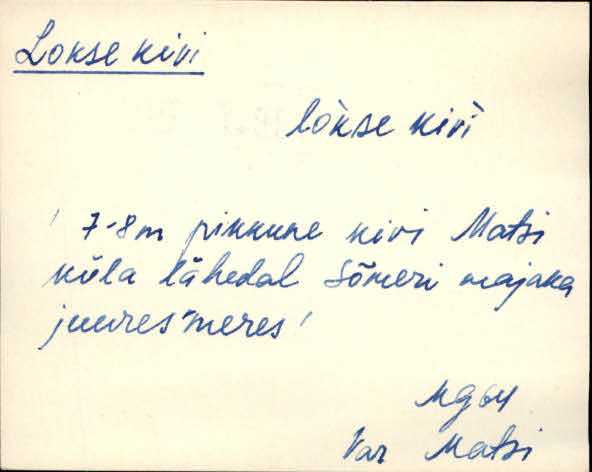 Lokse kivi
lòkse kivì
' 7-8m pikkune kivi Matsi
küla lähedal Sõmeri majaka
juures meres '
MG64
Var Matsi